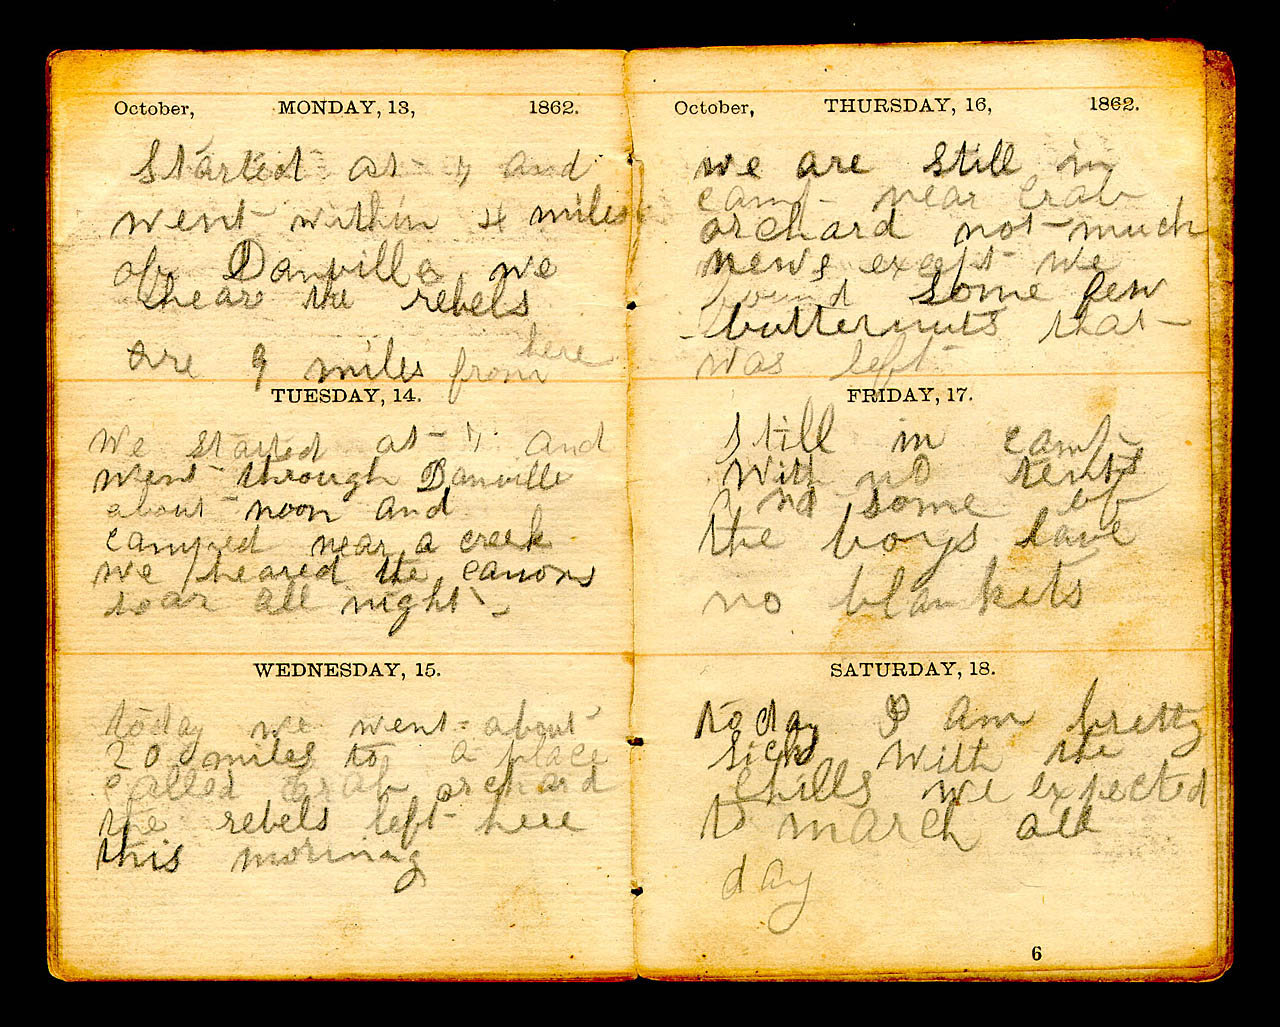 October, MONDAY, 13, 1862.
Started at 7 and
went within 4 miles
of Danville we
hear the rebels
are 9 miles from here
TUESDAY, 14.
We started at 7 and
went through Danville
about noon and
camped near a creek
we heared the canons
roar all night
WEDNESDAY, 15.
today we went about
20 miles to a place
called Crab orchard
the rebels left here
this morinag
October, THURSDAY, 16, 1862.
we are still in
camp near Crab
orchard not much
news except we
found some few
butternuts that
was left
FRIDAY, 17.
Still in camp
With no tents
and some of
the boys have
no blankets
SATURDAY, 18.
today I am pretty
sick With the
chills we expected
to march all
day
6